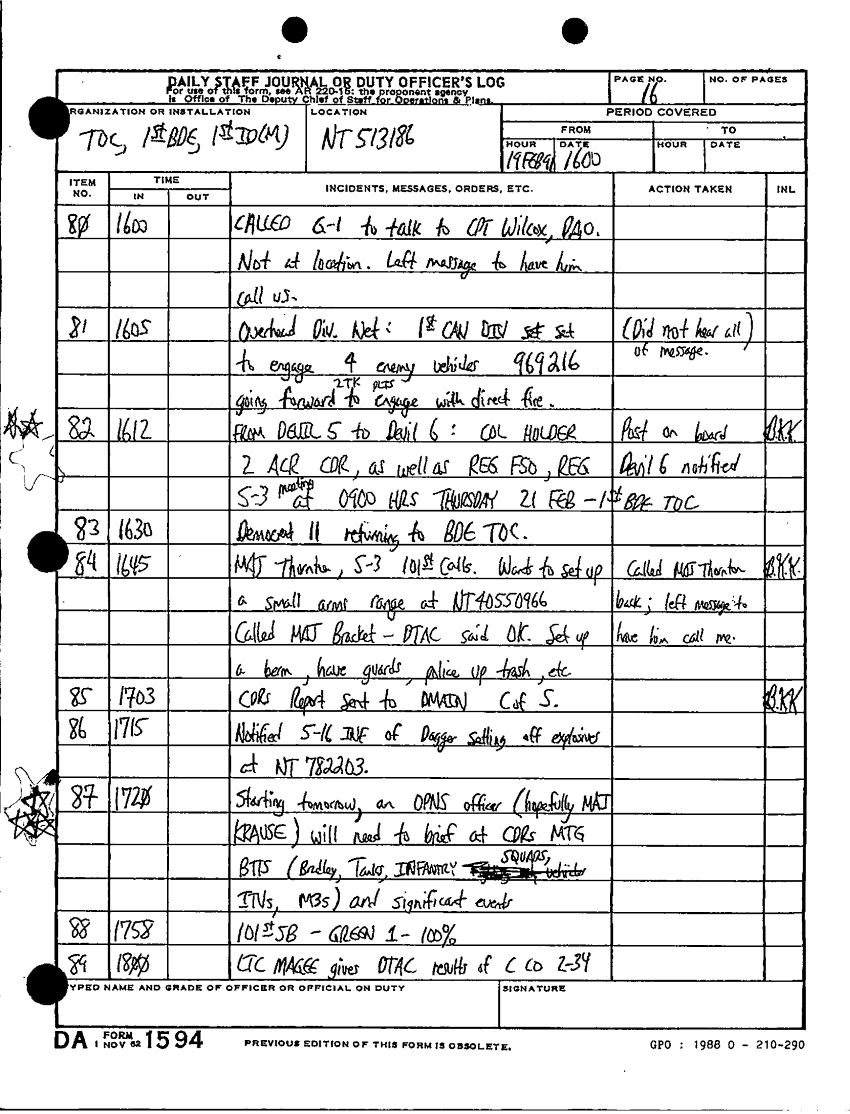 DAILY STAFF JOURNAL OR DUTY OFFICER'S LOG
For use of this form, see AR 220-15: the proponent agency
is Office of The Deputy Chief of Staff for Operations & Plans.
PAGE NO.
16
NO. OF PAGES
RGANIZATION OR INSTALLATION
TOC, 1st BDE, 1st ID(M)
LOCATION
NT 513186
PERIOD COVERED
FROM
TO
HOUR DATE
19FEB91 1600
HOUR DATE
ITEM NO.
TIME
IN OUT
INCIDENTS, MESSAGES, ORDERS, ETC.
ACTION TAKEN
INL
80 1600 CALLED G-1 to talk to CPT Wilcox, PAO.
Not at location. Left message to have him
call us.
81 1605 Overheard Div. Net: 1st CAN DIV set set (Did not hear all)
to engage 4 enemy vehicles 969216 of message.
2TK PLTS
going forward to engage with direct fire.
82 1612 FROM DEVIL 5 to Devil 6: COL HOLDER Post on board B.K.K
2 ACR CDR, as well as REG FSO, REG Devil 6 notified
S-3 meeting at 0900 HRS THURSDAY 21 FEB - 1st BDE TOC
83 1630 Democrat 11 returning to BDE TOC.
84 1645 MAJ Thornton, S-3 101st Calls. Wants to set up Called MAJ Thornton B.K.K.
a small arms range at NT40550966 back; left message to
Called MAJ Bracket - DTAC said OK. Set up have him call me.
a berm, have guards, police up trash, etc.
85 1703 CDRs Report Sent to DMAIN C of S. B.KK
86 1715 Notified 5-16 INF of Dagger setting off explosives
at NT 782203.
87 1720 Starting tomorrow, an OPNS officer (hopefully MAJ
KRAUSE) will need to brief at CDRs MTG
SQUADS,
BTIS (Bradley, Tanks, INFANTRY vehicles
ITVs, M3s) and significant events
88 1758 101st SB - GREEN 1 - 100%
89 1800 LTC MAGEE gives DTAC results of C CO 2-34
YPED NAME AND GRADE OF OFFICER OR OFFICIAL ON DUTY
SIGNATURE
DA FORM 1 NOV 62 1594
PREVIOUS EDITION OF THIS FORM IS OBSOLETE.
GPO : 1988 O - 210-290